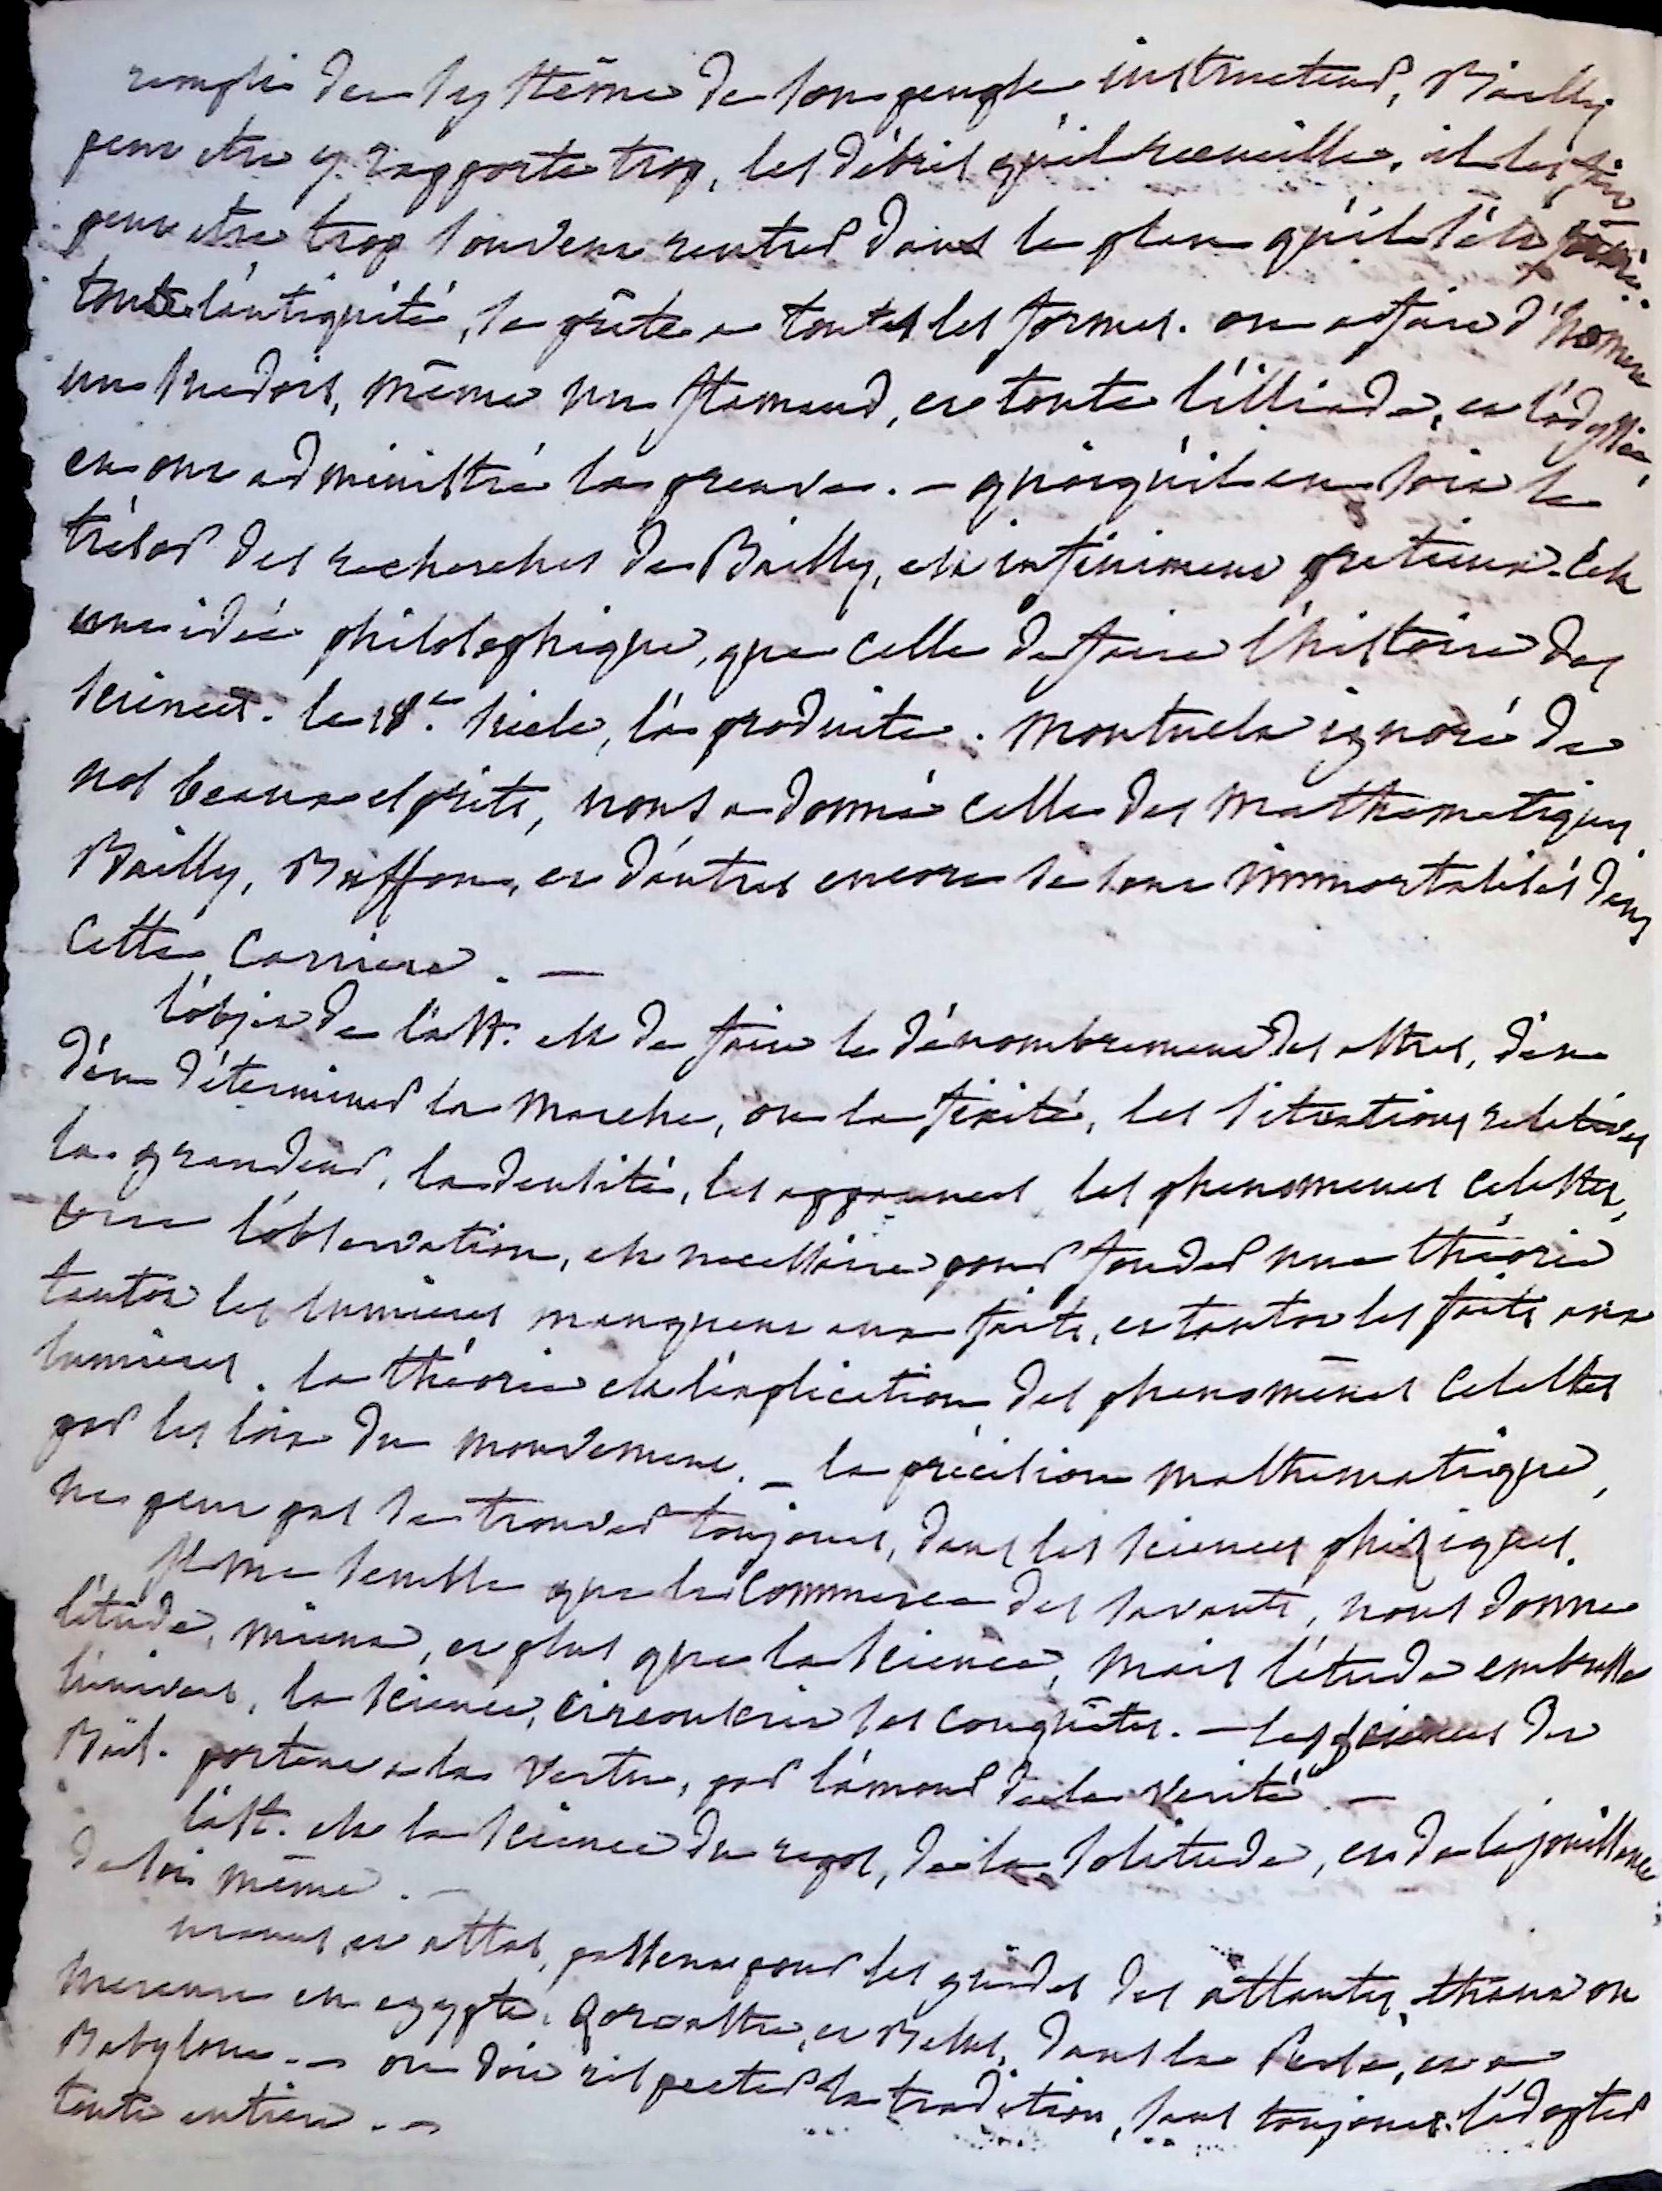 rempli du systême de son peuple instructeur, Bailly
peut etre y rapporte trop, les débris qu'il recueille, il les fait
peut etre trop souvent rentrer dans le plan qu'il s'est formé.
toute l'antiquité, se prête a toutes les formes. on a faire d'homere
un suedois, même un flamand, et toute l'illiade, et l'odyssée
en ont administré la preuve. — quoiqu'il en soit le
trésor des recherches de Bailly, est infiniment pretieux. c'est
une idée philosophique, que celle de faire l'histoire des
sciences. le 18e. siecle, l'a produite. Montucla ignoré de
nos beaux esprits, nous a donné celle des mathematiques
Bailly, Buffon, et d'autres encore se sont immortalisés dans
cette carriere. —
l'objet de l'ast. est de faire le dénombrement des astres, d'en
d'en déterminer la marche, ou la fixité, les situations relatives
la grandeur, la densité, les apparences les phenomenes celestes,
l'observation, est necessaire pour fonder une théorie
tantot les lumieres manquent aux faits, et tantot les faits aux
lumieres. la théorie est l'explication des phenomênes celestes
par les loix du mouvement. — la précision mathematique,
ne peut pas se trouver toujours, dans les sciences phisiques.
Il me semble que le commerce des savants, nous donne
l'étude, mieux, et plus que la science, mais l'étude embrasse
l'univers, la science, circonscrit ses conquêtes. — les sciences dit
Bail. portent a la vertu, par l'amour de la verité". —
l'ast. est la science du repos, de la solitude, et de la jouissance
de soi même. —
uranus et atlas, passent pour les guides des atlantes, thaut ou
mercure en egypte, Zoroastre, et Belus, dans la Perse, et a
Babylone. — on doit respecter la tradition, sans toujours l'adopter
toute entiere. —